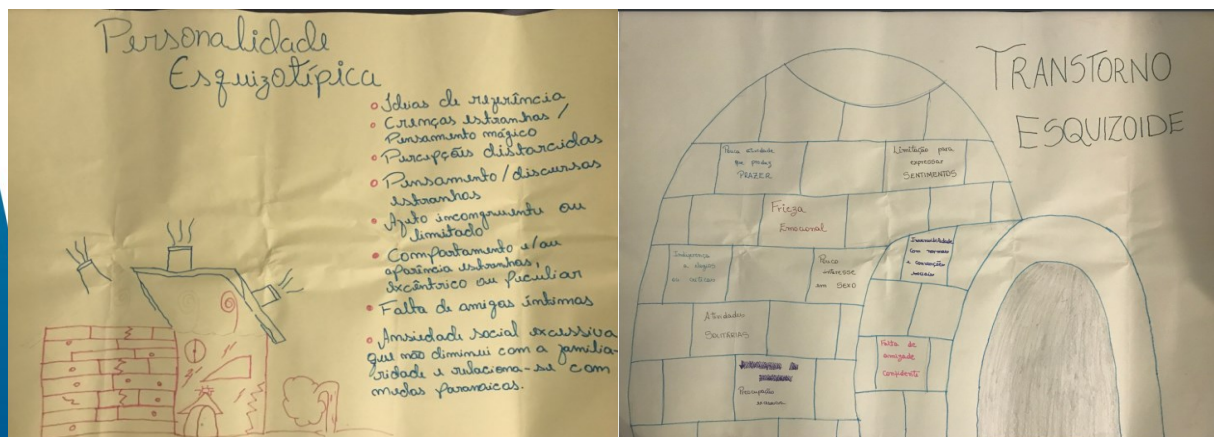 Personalidade
Esquizotípica
Ideias de referência
Crenças estranhas /
Pensamento mágico
Percepções distorcidas
Pensamento / discursos
estranhos
Afeto incongruente ou
limitado
Comportamento e/ou
aparência estranhas,
excêntrico ou peculiar
Falta de amigos íntimos
Ansiedade social excessiva
que não diminui com a familia-
ridade e relaciona-se com
medos paranoicos.
TRANSTORNO
ESQUIZOIDE
Pouca atividade
que produz
PRAZER
Limitação para
expressar
SENTIMENTOS
Frieza
Emocional
Indiferença
a elogios
ou críticas
Pouco
interesse
em SEXO
Insensibilidade
com normas
e convenções
sociais
Atividades
SOLITÁRIAS
Falta de
amizade
confidente
Preocupação